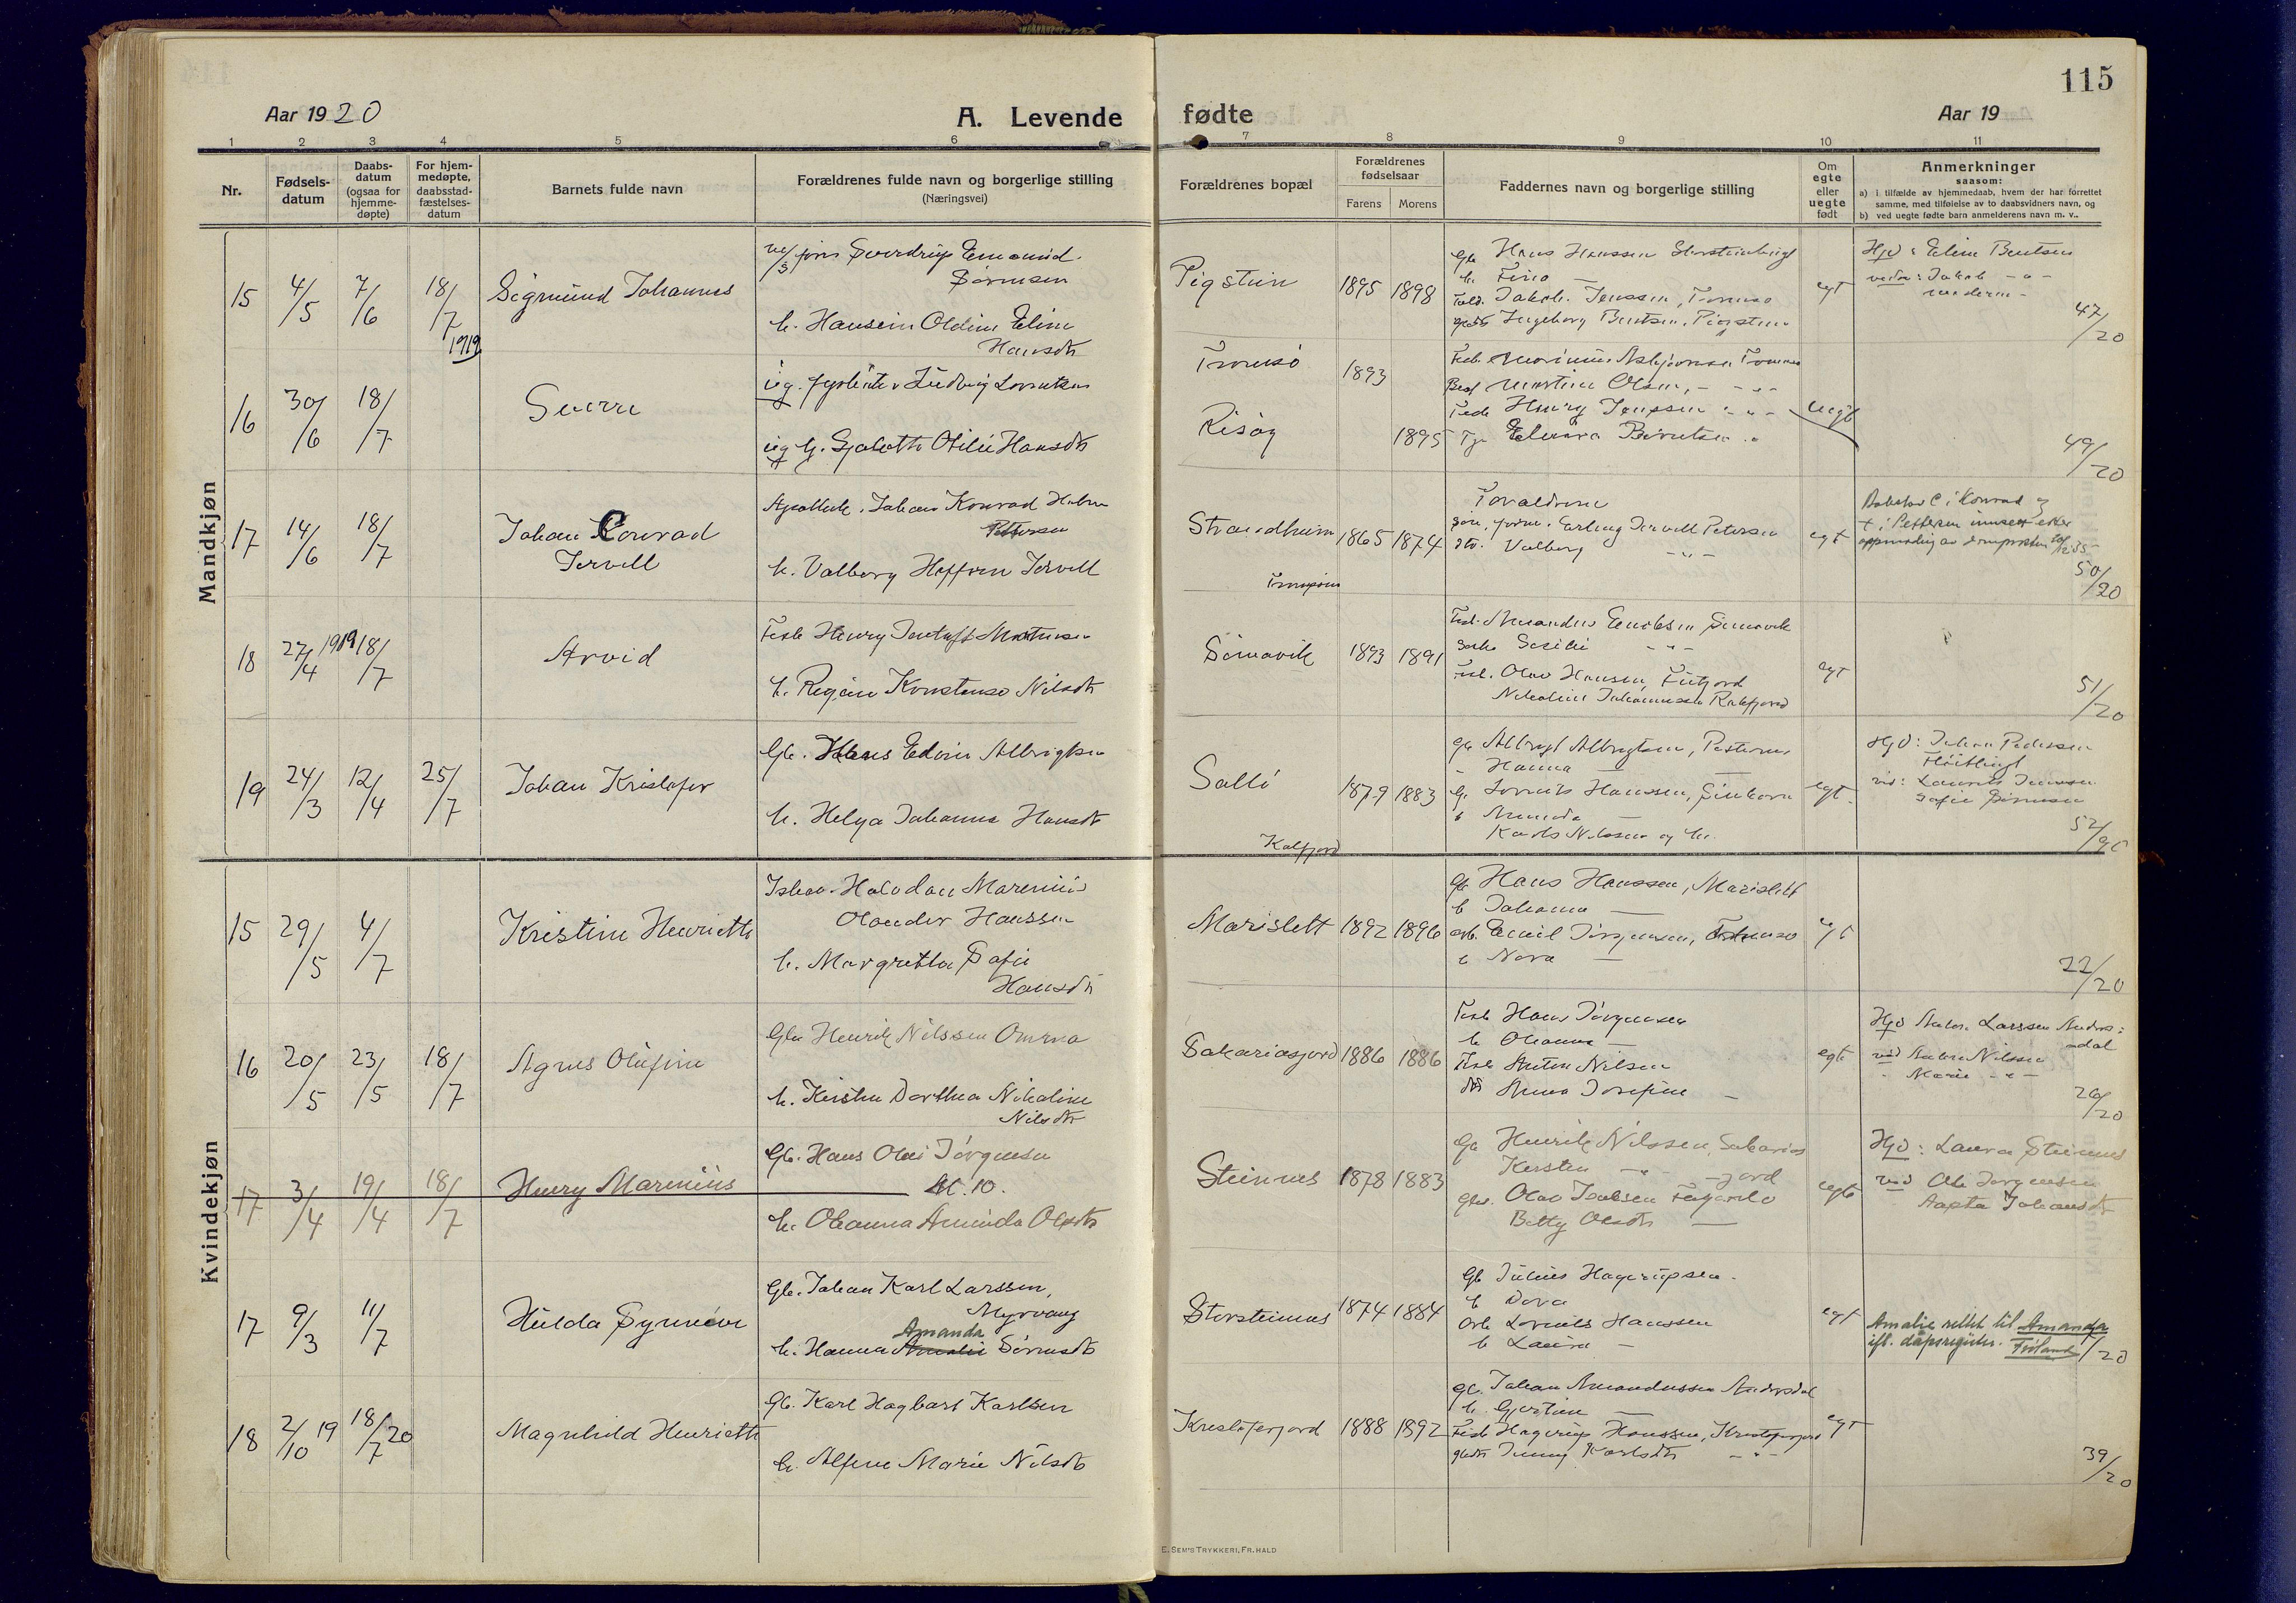 115
Aar 1920
A. Levende fødte
Aar 19
1 2 3 4 5 6 7 8 9 10 11
Nr.
Fødsels-
datum
Daabs-
datum
(ogsaa for
hjemme-
døpte)
For hjem-
medøpte,
daabsstad-
fæstelses-
datum
Barnets fulde navn
Forældrenes fulde navn og borgerlige stilling
(Næringsvei)
Forældrenes bopæl
Forældrenes
fødselsaar
Farens Morens
Faddernes navn og borgerlige stilling
Om
egte
eller
uegte
født
Anmerkninger
saasom:
a) i tilfælde av hjemmedaab, hvem der har forrettet
samme, med tilføielse av to daabsvidners navn, og
b) ved uegte fødte barn anmelderens navn m. v..
Mandkjøn
15 4/5 7/6 18/7 1919
Sigmund Johannes
Sverdrup Emanuel
Sørensen
h. Hansein Oldine Eline
Hansdtr
Pigstein 1895 1898
Hans Hanssen
h. Fina
Jakob Jenssen, Tromsø
Ingeborg Bentsen, Pigstein
egt
Hjd: Eline Bentsen
vidn: Jakob - " -
47/20
16 30/6 18/7
Sverre
ug. Ludvig Lorentsen
ug h. Otilie Hansdtr
Tromsø 1893
Risøy 1895
Martine Olsen, - " -
Henry Jenssen - " -
Berntsen "
uegte
49/20
17 14/6 18/7
Johan Conrad
Jervell
Johan Konrad Holm
Pettersen
h. Valborg Jervell
Strandheim 1865 1874
Tromsøen
Foraldrene
Erling Jervell Petersen
Valborg - " -
egt
C i Konrad og
t i Pettersen innsett etter
50/20
18 27/4 1919 18/7
Arvid
Fisk Henry Mortensen
h. Regine Konstanse Nilsdtr
Simavik 1893 1891
Simavik
- " -
Olav Hansen, Finfjord
Nikoline Johannesen
egt
51/20
19 24/3 12/4 25/7
Johan Kristofer
Gb. Hans Edvin Albrigtsen
h. Helga Johanna Hansdtr
Sallø 1879 1883
Kalfjord
Albrigt Albrigtsen,
Hanna
Hanssen,
Karl Nilssen og h.
egt
Hjd: Johan Pedersen
vid: Laurits Jensen
52/20
Kvindekjøn
15 29/5 4/7
Kristine Henriette
Halvdan Marenius
Olander Hanssen
h. Margretha Sofie
Hansdtr
Marislett 1892 1896
Gb Hans Hanssen, Marislett
h Johanna
arb. Emil Jørgensen, Tromsø
h Nora
egt
22/20
16 20/5 23/5 18/7
Agnes Olufine
Gbr Henrik Nilssen Omma
h. Kirsten Dorthea Nikoline
Nilsdtr
Sakariasjord 1886 1886
Fisk Hans Jørgensen
h Ohanna
Fisk Anton Nilsen
Anna Josefine
egte
Hjd Larssen Anders-
dal
vid Nilssen
Marie - " -
26/20
17 3/4 19/4 18/7
Henry Marenius
Gb. Hans Olai Jørgensen
M. 10.
h. Ohanna Aminda Olsdtr
Steinnes 1878 1883
Gb Henrik Nilssen, Sakarias-
Kirsten - " - jord
Olav Jakobsen
Betty Olsdtr
egte
Hjd: Laura Steinnes
vid Ole Jørgensen
Johansdtr
17 9/3 11/7
Hulda Synnøve
Gb. Johan Karl Larssen,
Myrvang
Amanda
h. Hanna Amalie Sørensdtr
Storsteinnes 1874 1884
Gb Julius Hagerupsen
h Dora
Arb Lornits Hanssen
h Laura
egt
Amalie rettet til Amanda
ifl. dåpsregister.
/20
18 2/10 19 18/7 20
Magnhild Henriette
Gb. Karl Hagbart Karlsen
h. Alfine Marie Nilsdtr
Kristoferjord 1888 1892
Gb. Johan Amandussen Andersdal
h.
Fisk Hagerup Hanssen, Kristoferjord
Jenny Karlsdtr - " -
egt
39/20
E. SEM'S TRYKKERI, FR. HALD